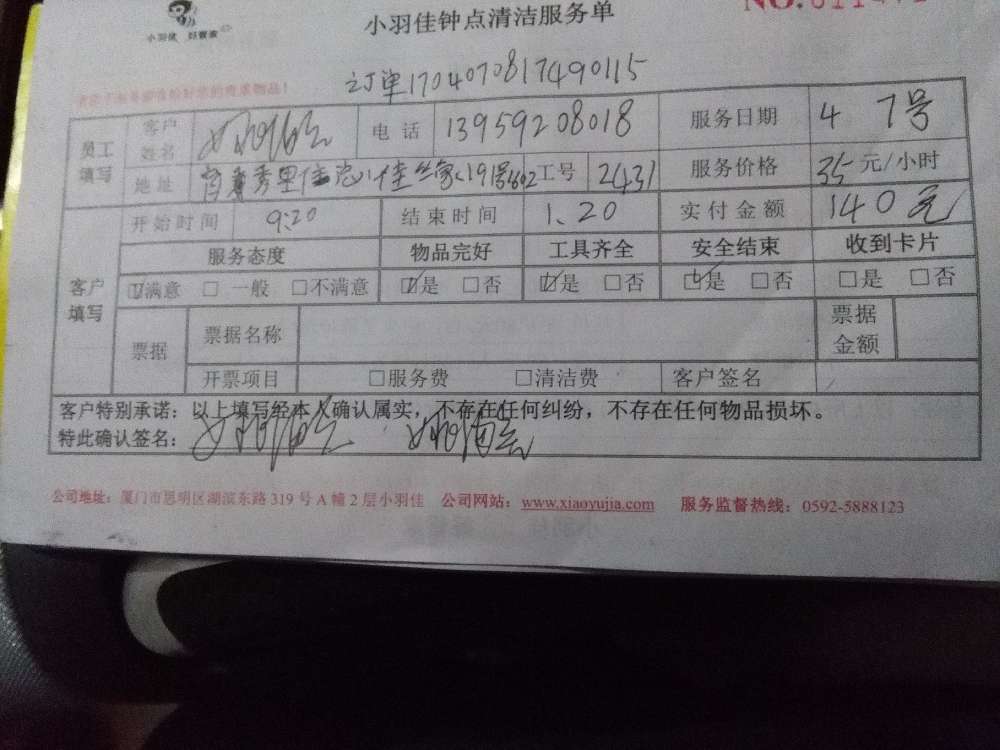 小羽佳 好管家
小羽佳钟点清洁服务单
NO.
订单1704070817490115
员工填写 客户姓名 电话 13959208018 服务日期 4 7号
地址 工号 2431 服务价格 35 元/小时
开始时间 9:20 结束时间 1、20 实付金额 140元
客户填写 服务态度 物品完好 工具齐全 安全结束 收到卡片
☑满意 □ 一般 □不满意 ☑是 □否 ☑是 □否 ☑是 □否 □是 □否
票据 票据名称 票据金额
开票项目 □服务费 □清洁费 客户签名
客户特别承诺：以上填写经本人确认属实，不存在任何纠纷，不存在任何物品损坏。
特此确认签名：
公司地址：厦门市思明区湖滨东路 319 号 A 幢 2 层小羽佳 公司网站：www.xiaoyujia.com 服务监督热线：0592-5888123